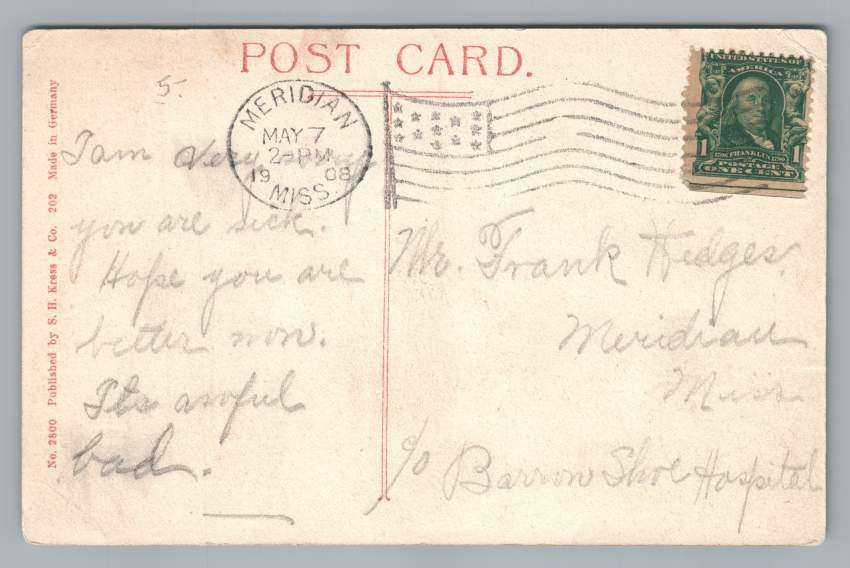 POST CARD.
5-
MERIDIAN
MAY 7
2-PM
1908
MISS.
UNITED STATES OF
AMERICA
1 1706 FRANKLIN 1790 1
POSTAGE
ONE CENT
No. 2800 Published by S. H. Kress & Co. 202 Made in Germany
I am very sorry
you are sick.
Hope you are
better now.
Its awful
bad.
Mr. Frank Hedges.
Meridian
Miss
c/o Barron Shoe Hospital